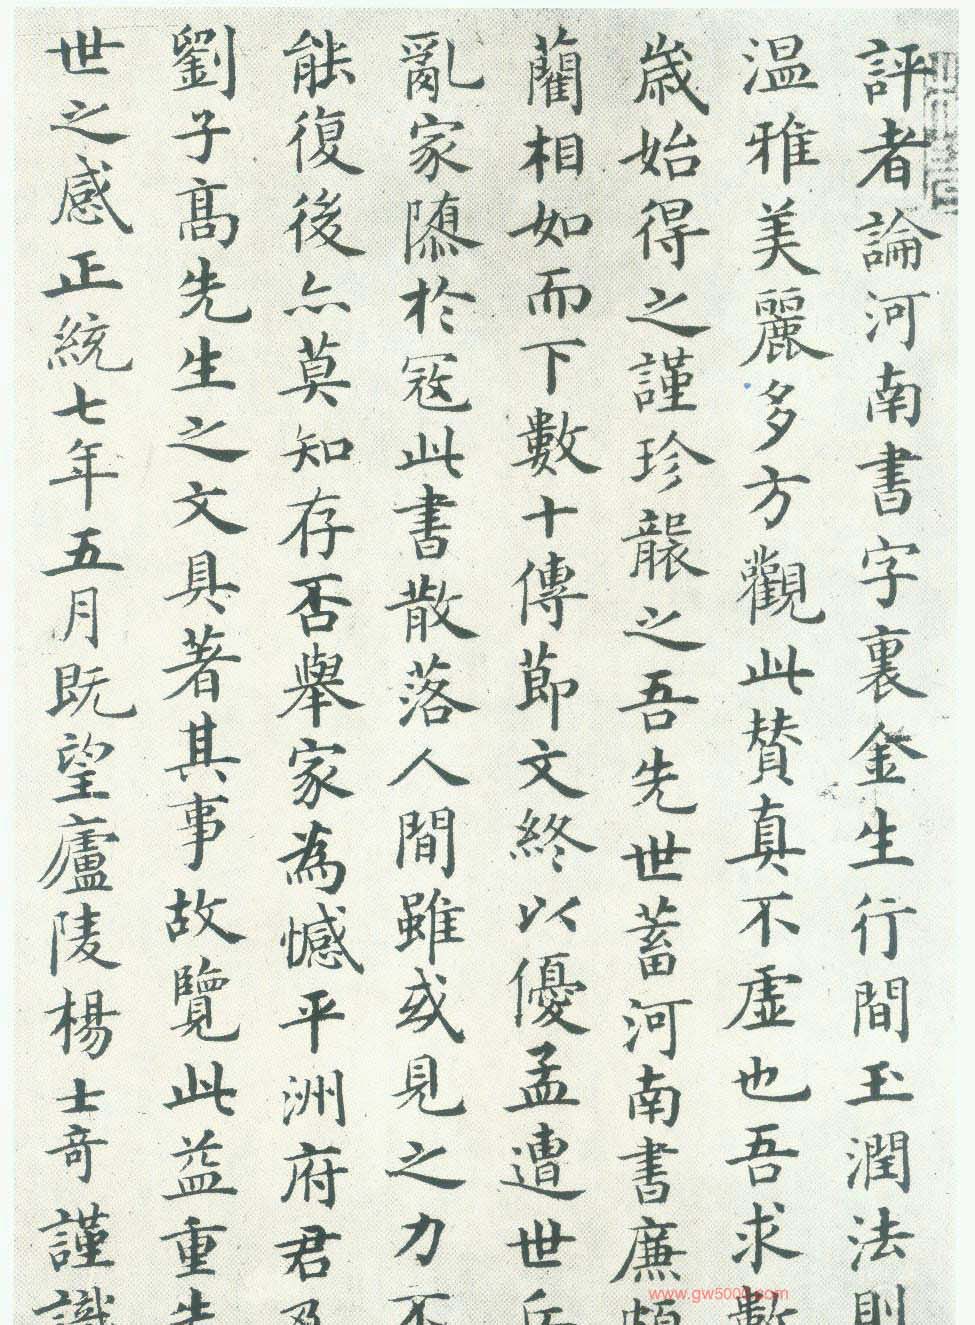 評者論河南書字裏金生行間玉潤法則
温雅美麗多方觀此賛真不虚也吾求數
嵗始得之謹珍襲之吾先世蓄河南書廉
藺相如而下數十傳莭文終以優孟遭世
亂家隳於冦此書散落人間雖或見之力不
能復後亦莫知存否舉家為憾平洲府君
劉子髙先生之文具著其事故覽此益重先
世之感正統七年五月既望廬陵楊士竒謹識
www.gw500
.com